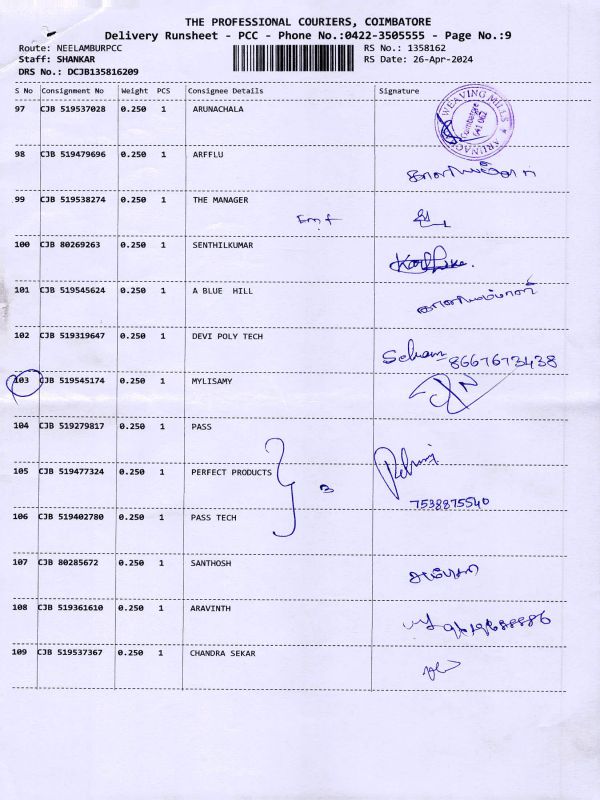 THE PROFESSIONAL COURIERS, COIMBATORE
Delivery Runsheet - PCC - Phone No.:0422-3505555 - Page No.:9
Route: NEELAMBURPCC RS No.: 1358162
Staff: SHANKAR RS Date: 26-Apr-2024
DRS No.: DCJB135816209
S No Consignment No Weight PCS Consignee Details Signature
97 CJB 519537028 0.250 1 ARUNACHALA
WEAVING MILLS
98 CJB 519479696 0.250 1 ARFFLU
99 CJB 519538274 0.250 1 THE MANAGER
100 CJB 80269263 0.250 1 SENTHILKUMAR
101 CJB 519545624 0.250 1 A BLUE HILL
102 CJB 519319647 0.250 1 DEVI POLY TECH
8667673438
103 CJB 519545174 0.250 1 MYLISAMY
104 CJB 519279817 0.250 1 PASS
105 CJB 519477324 0.250 1 PERFECT PRODUCTS
7538875540
106 CJB 519402780 0.250 1 PASS TECH
107 CJB 80285672 0.250 1 SANTHOSH
108 CJB 519361610 0.250 1 ARAVINTH
109 CJB 519537367 0.250 1 CHANDRA SEKAR